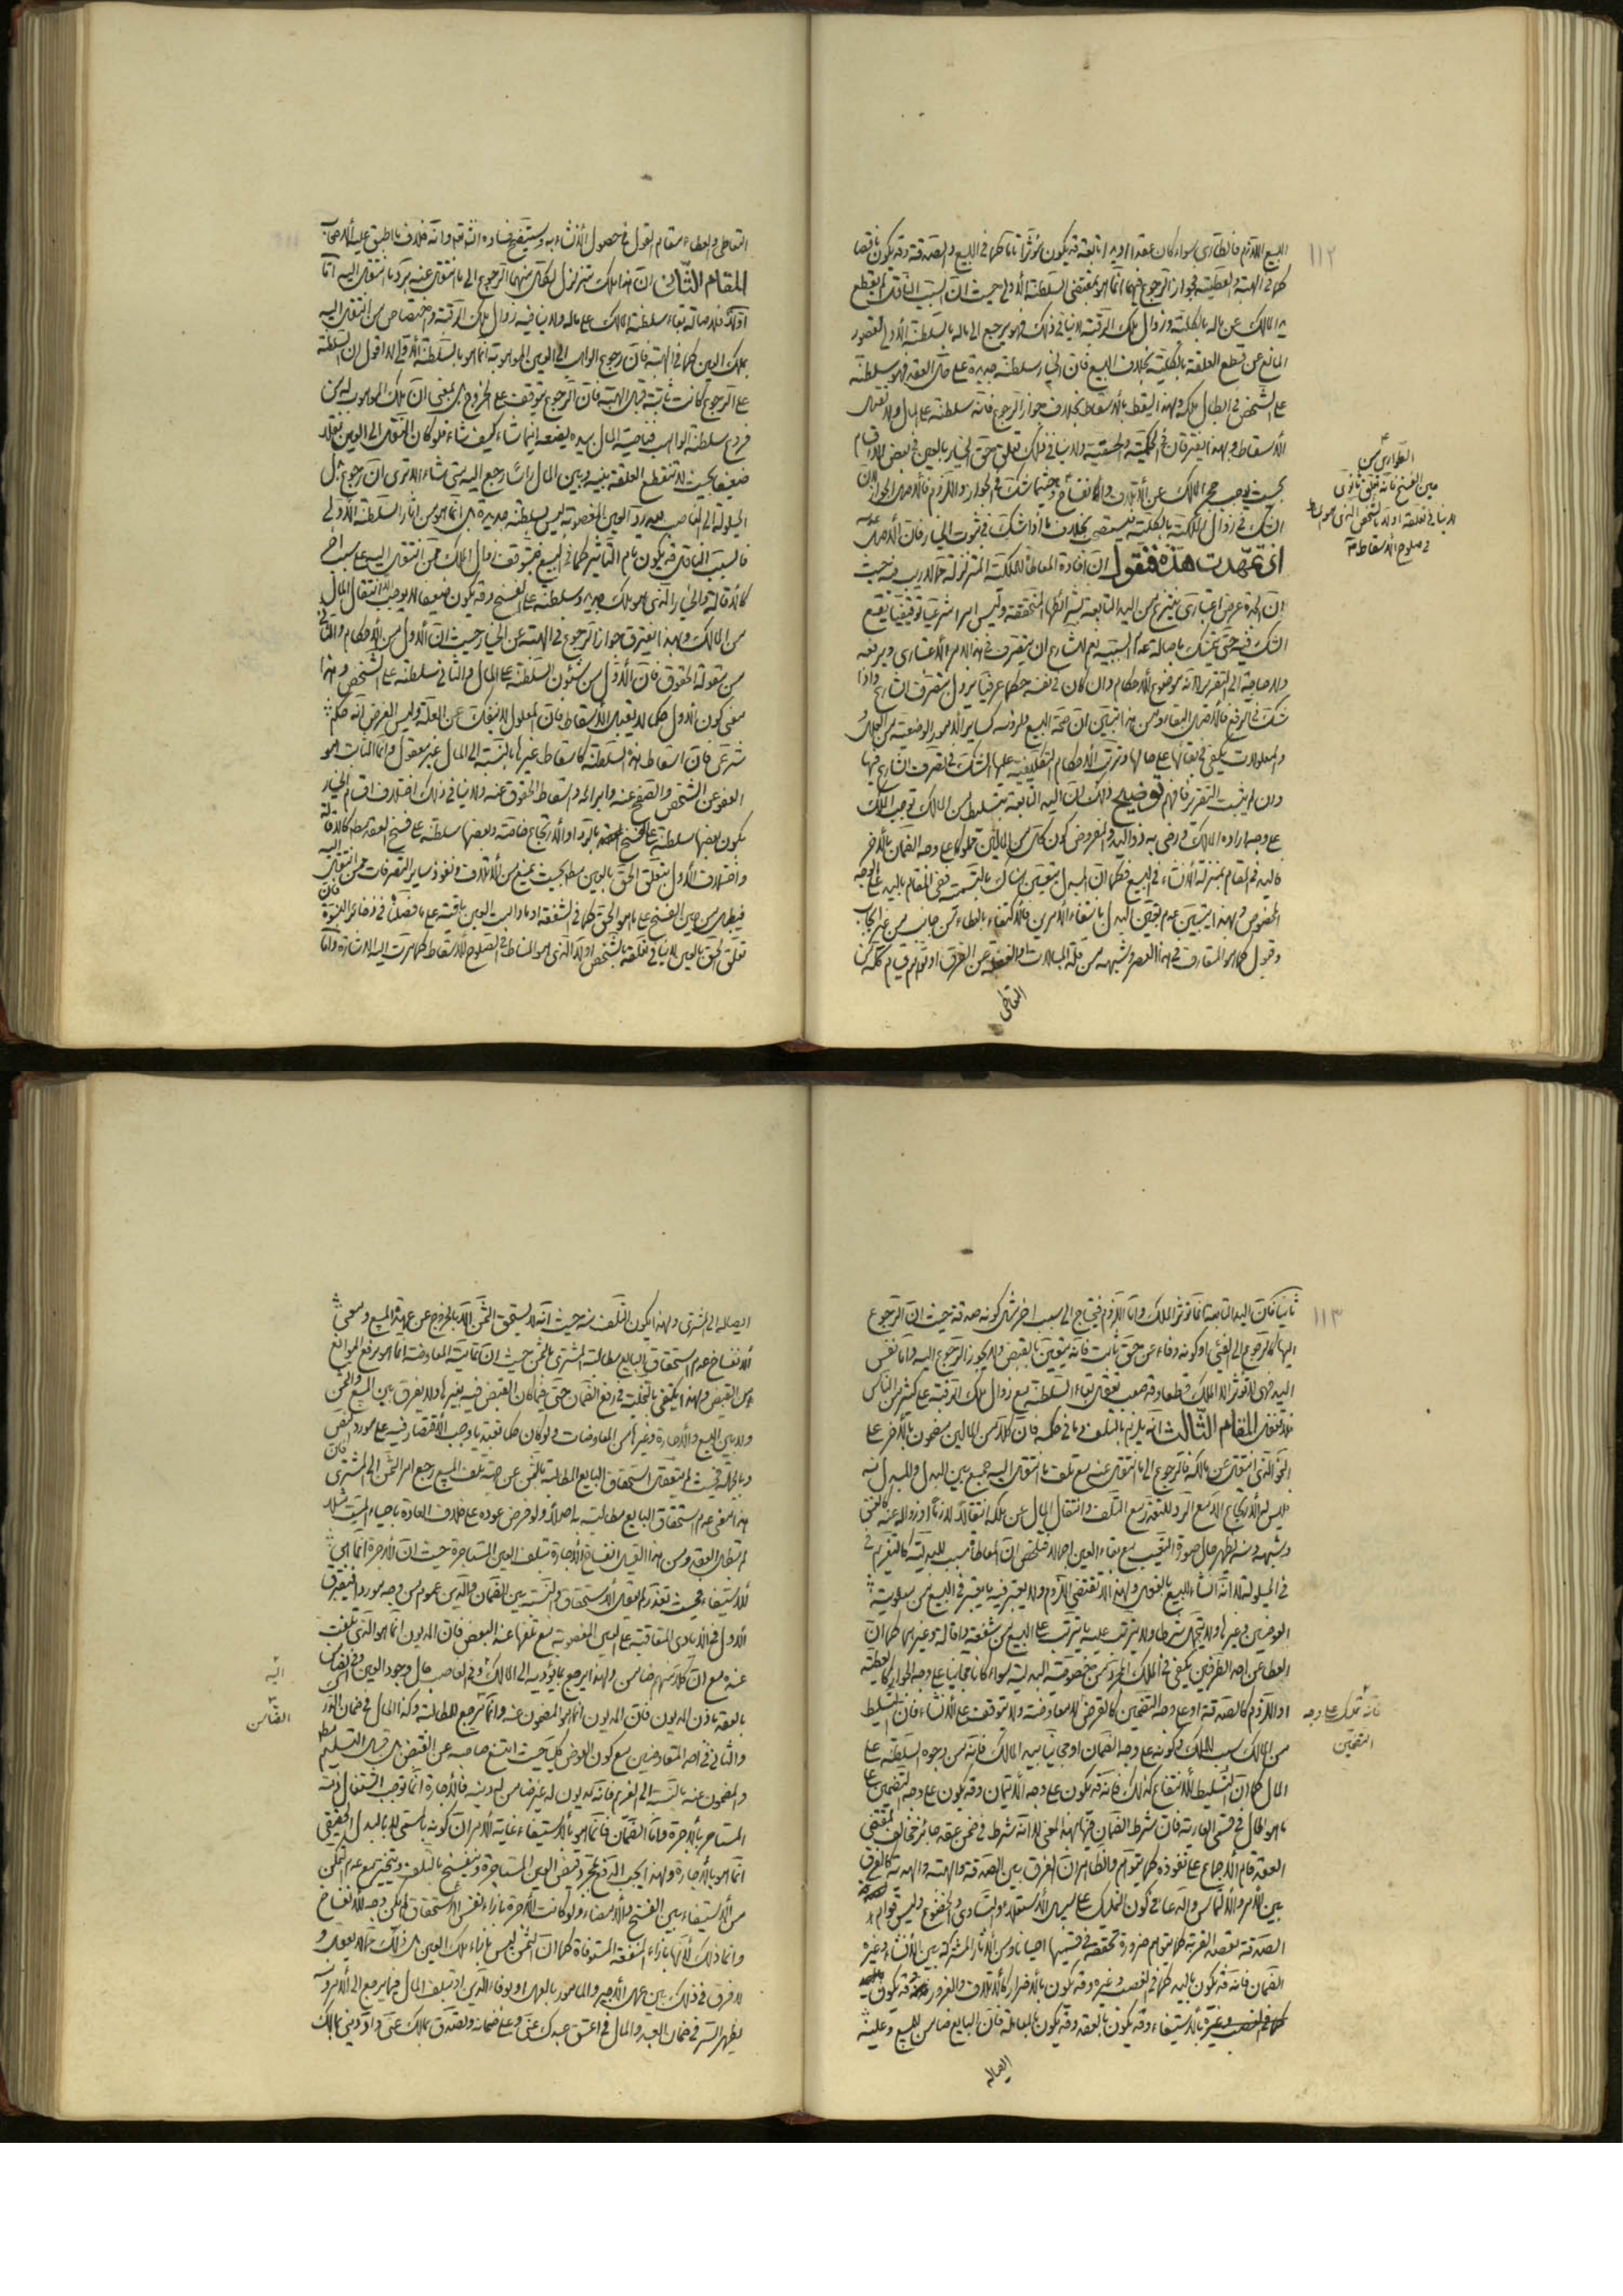 ١١٢
البيع اللازم فالطارى سواء كان عقدا او يدا تابعة قد يكون مؤثرا تاما كما فى البيع والصدقة وقد يكون ناقصا
كما فى الهبة والعطية فجواز الرجوع فيهما انما هو بمقتضى السلطنة الأولى حيث ان السبب الناقل لم يقطع
يد المالك عن ماله بالكلية وزوال ملك الرقبة لا ينافى ذلك فهو يرجع الى ماله بالسلطنة الأولى لقصور
المانع عن قطع العلقة بالكلية بخلاف البيع فان الخيار سلطنة جديدة على حل العقد فهو سلطنة
على الشخص فى ابطال ملكه ولهذا يسقط بالأسقاط بخلاف جواز الرجوع فانه سلطنة على المال ولا يقبل
الأسقاط وبهذا يفترقان فى الحكمية والحقية ولا ينافى ذلك تعلق حق الخيار بالعين فى بعض الأقسام
بحيث يوجب حجر المالك عن الأتلاف والانفساخ وحيثما شك فى الجواز واللزوم فالأصل الجواز لان
الشك فى زوال الملكية بالكلية فيستصحب بخلاف ما اذا شك فى ثبوت الخيار فان الأصل عدمه
اذا تمهدت هذه فنقول ان افادة المعاطاة للملكية المتزلزلة مما لا ريب فيه حيث
ان الملكية عرض اعتبارى ينتزع من اليد التابعة بشرائطها المتحققة وليس امرا شرعيا توقيفيا يقع
الشك فيه حتى يتمسك باصالة عدم السببية نعم للشارع ان يتصرف فى هذا الأمر الأعتبارى ويرفعه
ولا حاجة الى التقرير لانه موضوع للأحكام وان كان فى نفسه حكما عرفيا يزول بتصرف الشارع واذا
شك فى الرفع فالأصل البقاء ومن هذا تبين ان صحة البيع ولزومه كساير الأمور الوضعية من العلل
والمعلولات يكفى فى بقائها على حالها وترتب الأحكام التكليفية عليها الشك فى تصرف الشارع فيها
وان لم يثبت التقرير فافهم توضيح ذلك ان اليد التابعة بتسليط من المالك توجب الملك
على وجه اراده المالك ورضى به ذو اليد والمفروض كون كل من المالين مملوكا على وجه الضمان بالأخر
فاليد فى المقام بمنزلة الأنشاء فى البيع فكما ان المبدل يتعين هناك بالتسمية ففى المقام باليد على الوجه
المخصوص وبهذا تبين عدم تعين البدل بانتفاء الأمرين فالأكتفاء بالعطاء من جانب من غير ايجاب
وقبول كما هو المتعارف فى هذا العصر وشبهه من قلة المبالات والغفلة عن الفرق او توهم قيام كلمة من
التعاطى
الطوارى من
حين الفسخ فانه تعلق ثانوى
لا ينافى تعلقه اولا بالشخص الذى هو مناط
فى صلوح الأسقاط
التعاطى والعطاء مقام القول فى حصول الأنشاء به وستتضح فساده انشاء الله وانه خلاف ما اطبق عليه الأصحاب
المقام الثانى ان هذا ملك متزلزل لكل منهما الرجوع الى ما انتقل عنه برد ما انتقل اليه اما
اولا فلاصالة بقاء سلطنة المالك على ماله ولا ينافيه زوال ملك الرقبة واختصاص من انتقل اليه
بملك العين كما فى الهبة فان رجوع الواهب الى العين الموهوبة انما هو بالسلطنة الأولى لا اقول ان السلطنة
على الرجوع كانت ثابتة قبل الهبة فان الرجوع يتوقف على الخروج بل بمعنى ان ملك الموهوب له من
فروع سلطنة الواهب فناصية المال بيده يضعه اينما شاء كيف شاء فلو كان النقل الى الغير نقلا
ضعيفا بحيث لا تنقطع العلقة بينه وبين المال راسا رجع اليه متى شاء الا ترى ان رجوع بدل
الحيلولة الى الغاصب بعد رد العين المغصوبة ليس بسلطنة جديدة بل انما هو من اثار السلطنة الأولى
فالسبب الناقل قد يكون تام التأثير كما فى البيع فيتوقف زوال الملك عمن انتقل اليه على سبب اخر
كالأقالة والخيار الذى هو ملك جديد وسلطنة على الفسخ وقد يكون ضعيفا لا يوجب الا انتقال المال
من المالك وبهذا يفترق جواز الرجوع فى الهبة عن الخيار حيث ان الأول من الأحكام والثانى
من مقولة الحقوق فان الأول من شئون السلطنة على المال والثانى سلطنة على الشخص وهذا
معنى كون الأول حكما لا يقبل الأسقاط فان المعلول لا ينفك عن العلة وليس الغرض انه حكم
شرعى فان اسقاط هذه السلطنة كاسقاط غيرها بالنسبة الى المال غير معقول وانما الثابت هو
العفو عن الشخص والصفح عنه وابرائه واسقاط الحقوق عنه ولا ينافى ذلك اختلاف اقسام الخيار
بكون بعضها سلطنة على الفسخ بالرد او الأرتجاع خاصة وبعضها سلطنة على فسخ العقد مطلقا كالأقالة
واختلاف الأول بتعلق الحق بالعين مطلقا بحيث يمنع من الأتلاف ونفوذ ساير التصرفات ممن انتقل اليه
فيبطل من حين الفسخ على ما هو الحق كما فى الشفعة او ما دامت العين باقية على ما فصلنا فى ذخائر النبوة فان
تعلق الحق بالعين لا ينافى تعلقه بالشخص اولا الذى هو المناط فى الصلوح للأسقاط كما مرت اليه الأشارة واما
١١٣
ثانيا فلان اليد التابعة انما تؤثر الملك واما اللزوم فيحتاج الى سبب اخر مثل كونه صدقة حيث ان الرجوع
اليها كالرجوع الى القئ او كونه وفاء عن حق ثابت فانه يتعين بالقبض ولا يجوز الرجوع اليه واما نفس
اليد فهى لا تؤثر الا الملك قطعا وقد صعب تعقل بقاء السلطنة مع زوال ملك الرقبة على كثير من الناس
فلا تغفل المقام الثالث انه يلزم بالتلف وما فى حكمه فان كلا من المالين مضمون بالأخر على
النحو الذى انتقل عن مالكه فالرجوع الى ما انتقل عنه مع تلف ما انتقل اليه جمع بين البدل والمبدل منه
فليس له الأرتجاع الا مع الرد المتعذر مع التلف وانتقال المال عن ملكه انتقالا لازما او زواله عنه كالعتق
وشبهه ومنه يظهر حال صورة التعيب مع بقاء العين اجمالا فتلخص ان المعاطاة سبب للبدلية كالتغريم فى
فى الحيلولة لا انه انشاء للبيع بالفعل ولهذا لا تقتضى اللزوم ولا يعتبر فيه ما يعتبر فى البيع من معلومية
العوضين وغيرها ولا يحتمل شرطا ولا يترتب عليه ما يترتب على البيع من شفعة واقالة وغيرهما كما ان
العطاء من احد الطرفين يكفى فى الملك المجرد عن خصوصية البدلية سواء كانا مجانيا على وجه الجواز كالعطية
او اللزوم كالصدقة او على وجه التضمين كالقرض لا معاوضة ولا يتوقف على الأنشاء فان التسليط
من المالك سبب للملك وكونه على وجه الضمان او مجانيا بيد المالك فانه من وجوه السلطنة على
المال كما ان التسليط للأنتفاع كذلك فانه قد يكون على وجه الأيتمان وقد يكون على وجه التضمين على
ما هو الحال فى قسمى العارية فان شرط الضمان فيها بهذا المعنى لا انه شرط فى ضمن عقد جائز مخالف لمقتضى
العقد قام الأجماع على نفوذه كما يتوهم والظاهر ان الفرق بين الصدقة والهبة والهدية كالفرق
بين الأمر والألتماس والدعاء فى كون التمليك على سبيل الأستعلاء والتساوى والخضوع وليس قوام
الصدقة بقصد القربة كما يتوهم ضرورة تحققه فى قسيمها احيانا ومن الأثار المشتركة بين الأنشاء وغيره
الضمان فانه قد يكون باليد كما فى الغصب وغيره وقد يكون بالأضرار كالأتلاف والغرور وقد يكون
بالأستيفاء وقد يكون بالعقد وقد يكون بالمعاملة فان البايع ضامن للمبيع وعليه
ايصاله
فانه تمليك على وجه
التضمين
ايصاله الى المشترى ولهذا يكون التلف منه حيث انه لا يستحق الثمن الا بالخروج عن عهدة المبيع ومعنى
الأنفساخ عدم استحقاق البايع مطالبة المشترى بالثمن حيث ان تمامية المعاوضة انما هو برفع الموانع
من القبض ولهذا يكتفى بالتخلية فى رفع الضمان حتى فيما كان القبض فيه بغيرها ولا يفرق بين المبيع والثمن
ولا بين البيع والأجارة وغيرها من المعاوضات ولو كان حكما تعبديا وجب الأقتصار فيه على مورد النص
وبالجملة فحيث لم يتعقل استحقاق البايع المطالبة بالثمن عن جهة تلف المبيع رجع امر الثمن الى المشترى فان
هذا معنى عدم استحقاق البايع مطالبته به اصلا ولو فرض عوده على خلاف العادة باحياء الميت مثلا
لم يبطل العقد ومن هذا القبيل انفساخ الأجارة بتلف العين المستاجرة حيث ان الأجرة انما هى
للأستيفاء فحيث تعذر لم يعقل الأستحقاق والنسبة بين الضمان والدين عموم من وجه مورد افتراق
الأول فى الأيادى المتعاقبة على العين المغصوبة مع تلفها عند البعض فان المديون انما هو الذى تلفت
عنده مع ان كلا منهم ضامن ولهذا يرجع بما يؤديه الى المالك وفى الغاصب حال وجود العين وفى الضامن
بالعقد باذن المديون فان المديون انما هو المضمون عنه وانما يرجع للمطالبة وكذا الحال فى ضمان الدرك
والثانى فى احد المتعاوضين مع كون العوض كليا حيث امتنع صاحبه عن القبض بل قبل التسليم مطلقا
والمضمون عنه بالنسبة الى الغريم فانه مديون له غير ضامن لدينه فالأجارة انما توجب اشتغال ذمة
المستاجر بالأجرة واما الضمان فانما هو بالأستيفاء غاية الأمر ان كونه بالمسمى لا بالبدل الحقيقى
انما هو بالأجارة ولهذا يجب الدفع بمجرد قبض العين المستاجرة وينفسخ بالتلف ويتخير مع عدم التمكن
من الأستيفاء بين الفسخ والأمضاء ولو كانت الأجرة بازاء نفس الأستحقاق لم يكن وجه للأنفساخ
وانما ذلك لأنها بازاء المنفعة المستوفاة كما ان الثمن ليس بازاء ملك العين بل ذلك مما لا يعقل و
لا فرق فى ذلك بين عمل الأجير والمامور بالعمل او بوفاء الدين او بتلف المال فيما يرجع الى الأمر ومنه
يظهر السر فى ضمان العبد والمال فى اعتق عبدك عنى وعلى ضمانه وتصدق بمالك عنى واد دينى بمالك
اليه
الضامن